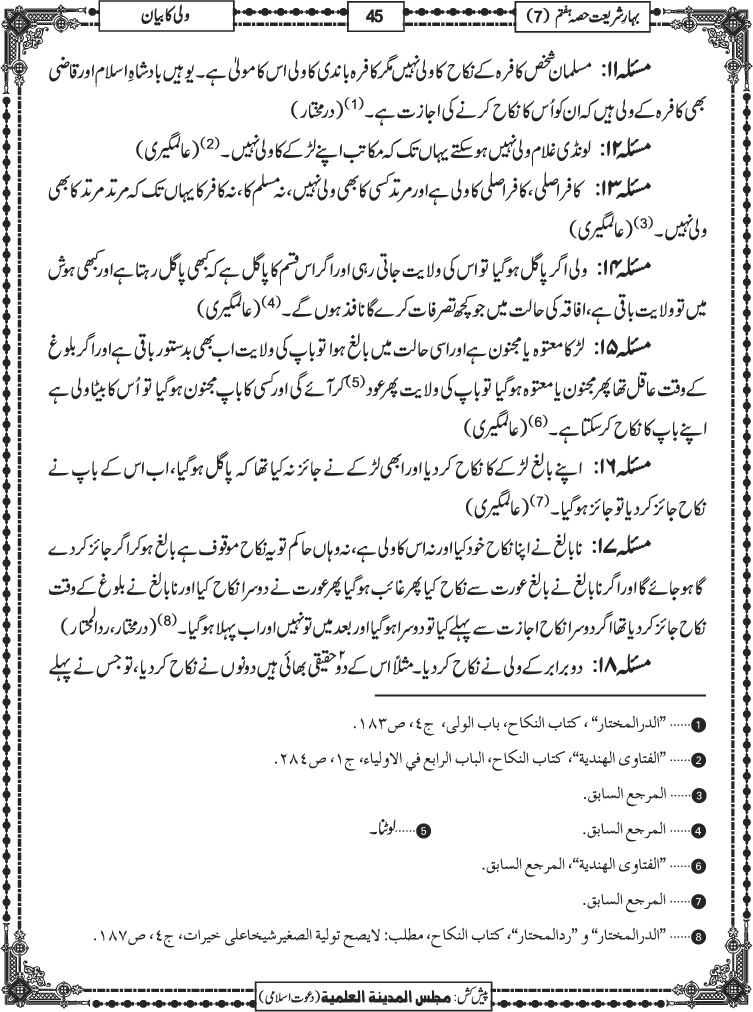 بہارِ شریعت حصہ ہفتم (7)
45
ولی کا بیان
مسئلہ ۱۱: مسلمان شخص کافرہ کے نکاح کا ولی نہیں مگر کافرہ باندی کا ولی اس کا مولیٰ ہے۔ یوہیں بادشاہِ اسلام اور قاضی
بھی کافرہ کے ولی ہیں کہ ان کو اُس کا نکاح کرنے کی اجازت ہے۔ (1) (درمختار)
مسئلہ ۱۲: لونڈی غلام ولی نہیں ہو سکتے یہاں تک کہ مکاتب اپنے لڑکے کا ولی نہیں۔ (2) (عالمگیری)
مسئلہ ۱۳: کافر اصلی، کافر اصلی کا ولی ہے اور مرتد کسی کا بھی ولی نہیں، نہ مسلم کا، نہ کافر کا یہاں تک کہ مرتد مرتد کا بھی
ولی نہیں۔ (3) (عالمگیری)
مسئلہ ۱۴: ولی اگر پاگل ہوگیا تو اس کی ولایت جاتی رہی اور اگر اس قسم کا پاگل ہے کہ کبھی پاگل رہتا ہے اور کبھی ہوش
میں تو ولایت باقی ہے، افاقہ کی حالت میں جو کچھ تصرفات کرے گا نافذ ہوں گے۔ (4) (عالمگیری)
مسئلہ ۱۵: لڑکا معتوہ یا مجنون ہے اور اسی حالت میں بالغ ہوا تو باپ کی ولایت اب بھی بدستور باقی ہے اور اگر بلوغ
کے وقت عاقل تھا پھر مجنون یا معتوہ ہوگیا تو باپ کی ولایت پھر عود (5) کر آئے گی اور کسی کا باپ مجنون ہوگیا تو اُس کا بیٹا ولی ہے
اپنے باپ کا نکاح کر سکتا ہے۔ (6) (عالمگیری)
مسئلہ ۱۶: اپنے بالغ لڑکے کا نکاح کر دیا اور ابھی لڑکے نے جائز نہ کیا تھا کہ پاگل ہوگیا، اب اس کے باپ نے
نکاح جائز کر دیا تو جائز ہوگیا۔ (7) (عالمگیری)
مسئلہ ۱۷: نابالغ نے اپنا نکاح خود کیا اور نہ اس کا ولی ہے، نہ وہاں حاکم تو یہ نکاح موقوف ہے بالغ ہو کر اگر جائز کر دے
گا ہو جائے گا اور اگر نابالغ نے بالغ عورت سے نکاح کیا پھر غائب ہوگیا پھر عورت نے دوسرا نکاح کیا اور نابالغ نے بلوغ کے وقت
نکاح جائز کر دیا تھا اگر دوسرا نکاح اجازت سے پہلے کیا تو دوسرا ہوگیا اور بعد میں تو نہیں اور اب پہلا ہوگیا۔ (8) (درمختار، ردالمحتار)
مسئلہ ۱۸: دو برابر کے ولی نے نکاح کر دیا۔ مثلاً اس کے دو۲ حقیقی بھائی ہیں دونوں نے نکاح کر دیا، تو جس نے پہلے
1 ...... "الدرالمختار"، کتاب النکاح، باب الولی، ج٤، ص١٨٣.
2 ...... "الفتاوی الهندية"، کتاب النکاح، الباب الرابع في الاولیاء، ج١، ص٢٨٤.
3 ...... المرجع السابق.
4 ...... المرجع السابق. 5 ...... لوٹنا۔
6 ...... "الفتاوی الهندية"، المرجع السابق.
7 ...... المرجع السابق.
8 ...... "الدرالمختار" و "ردالمحتار"، کتاب النکاح، مطلب: لایصح تولیة الصغیر شیخاعلی خیرات، ج٤، ص١٨٧.
پیش کش: مجلس المدینة العلمیة (دعوت اسلامی)